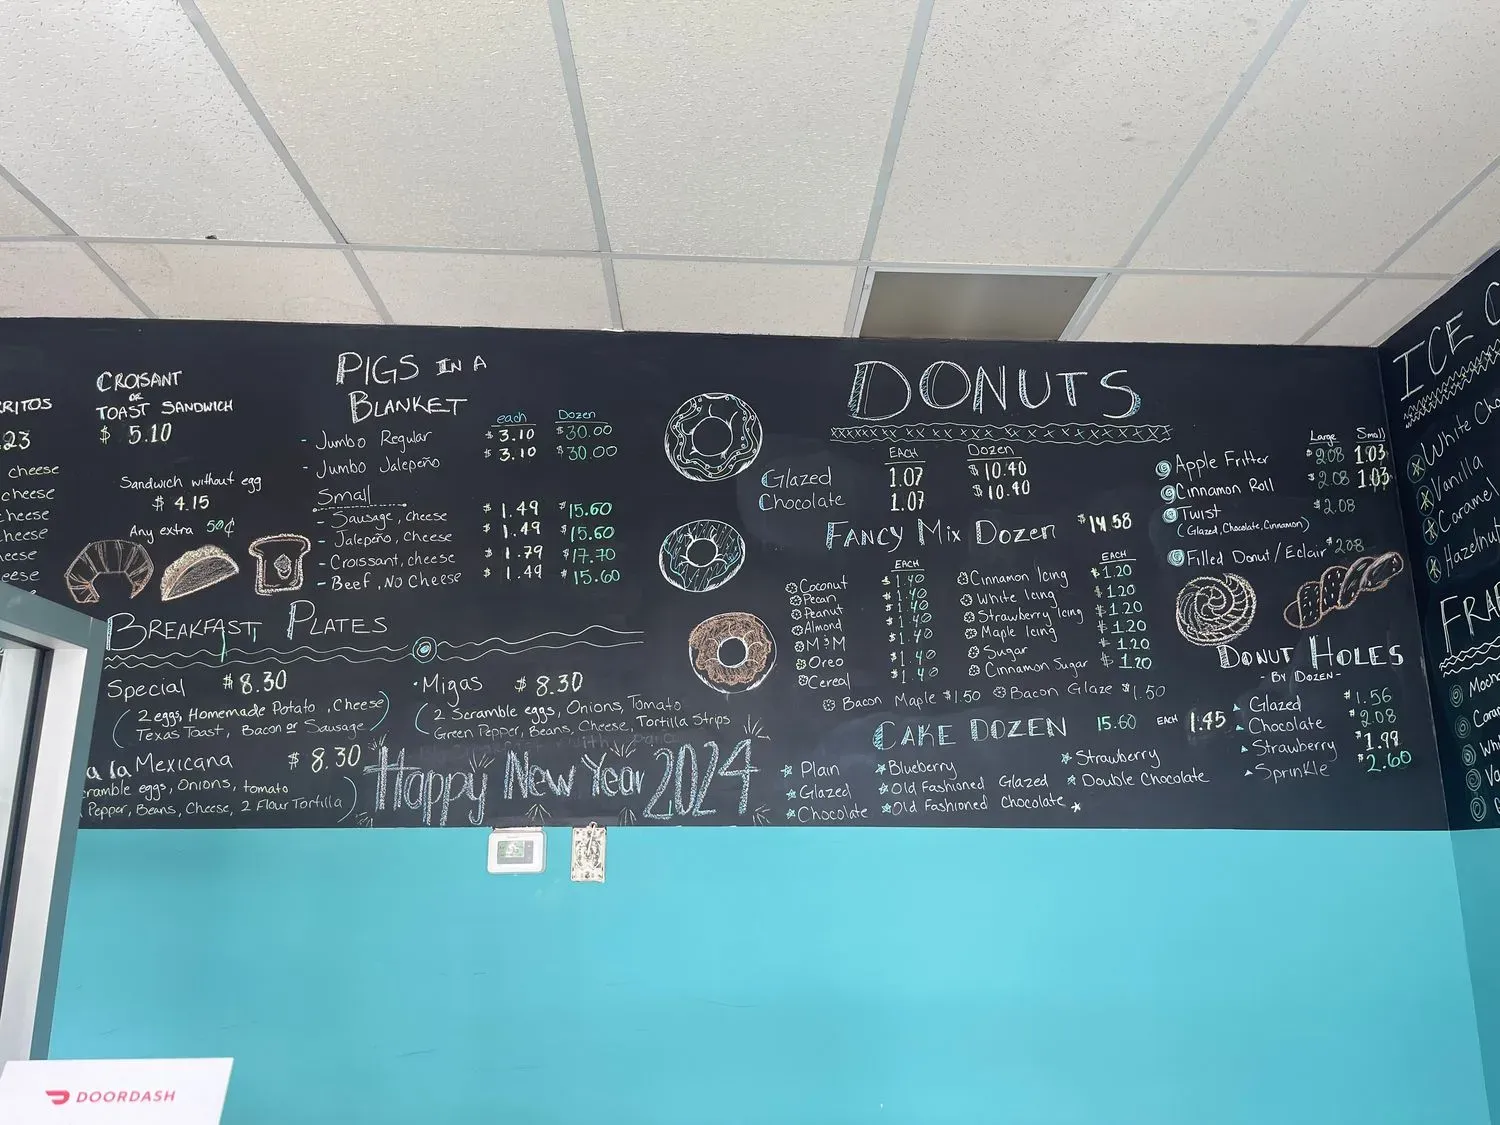 RRITOS
.23
cheese
cheese
heese
heese
eese
CROISANT
or
TOAST SANDWICH
$ 5.10
Sandwich without egg
$ 4.15
Any extra 50¢
PIGS IN A
BLANKET
each Dozen
- Jumbo Regular $ 3.10 $30.00
- Jumbo Jalepeño $ 3.10 $30.00
Small
- Sausage, Cheese $ 1.49 $15.60
- Jalepeño, Cheese $ 1.49 $15.60
- Croissant, cheese $ 1.79 $17.70
- Beef, No Cheese $ 1.49 $15.60
BREAKFAST PLATES
Special $8.30
(2 eggs, Homemade Potato, Cheese
Texas Toast, Bacon or Sausage)
a la Mexicana $ 8.30
ramble eggs, Onions, tomato
Pepper, Beans, Cheese, 2 Flour Tortilla)
· Migas $ 8.30
(2 Scramble eggs, Onions, Tomato
Green Pepper, Beans, Cheese, Tortilla Strips
Happy New Year 2024
DONUTS
EACH DOZEN
Glazed 1.07 $ 10.40
Chocolate 1.07 $ 10.40
FANCY MIX DOZEN $14.58
EACH
Coconut $1.40
Pecan $1.40
Peanut $1.40
Almond $1.40
M&M $1.40
Oreo $1.40
Cereal $1.40
EACH
Cinnamon Icing $1.20
White Icing $1.20
Strawberry Icing $1.20
Maple Icing $1.20
Sugar $1.20
Cinnamon Sugar
Bacon Maple $1.50 Bacon Glaze $1.50
CAKE DOZEN 15.60 EACH 1.45
Plain
Glazed
Chocolate
Blueberry
Old Fashioned Glazed
Old Fashioned Chocolate
Strawberry
Double Chocolate
Large Small
Apple Fritter $2.08 1.03
Cinnamon Roll $2.08 1.03
Twist $2.08
(Glazed, Chocolate, Cinnamon)
Filled Donut / Eclair $2.08
DONUT HOLES
- BY DOZEN -
Glazed $1.56
Chocolate $2.08
Strawberry $1.99
Sprinkle 2.60
ICE C
White Cho
Vanilla
Caramel
Hazelnut
FRAP
Mocha
Cara
Whi
Va
DOORDASH